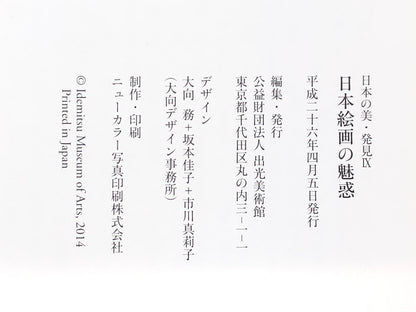 日本の美・発見Ⅸ
日本絵画の魅惑
平成二十六年四月五日発行
編集・発行
公益財団法人 出光美術館
東京都千代田区丸の内三-一-一
デザイン
大向 務+坂本佳子+市川真莉子
(大向デザイン事務所)
制作・印刷
ニューカラー写真印刷株式会社
© Idemitsu Museum of Arts, 2014
Printed in Japan